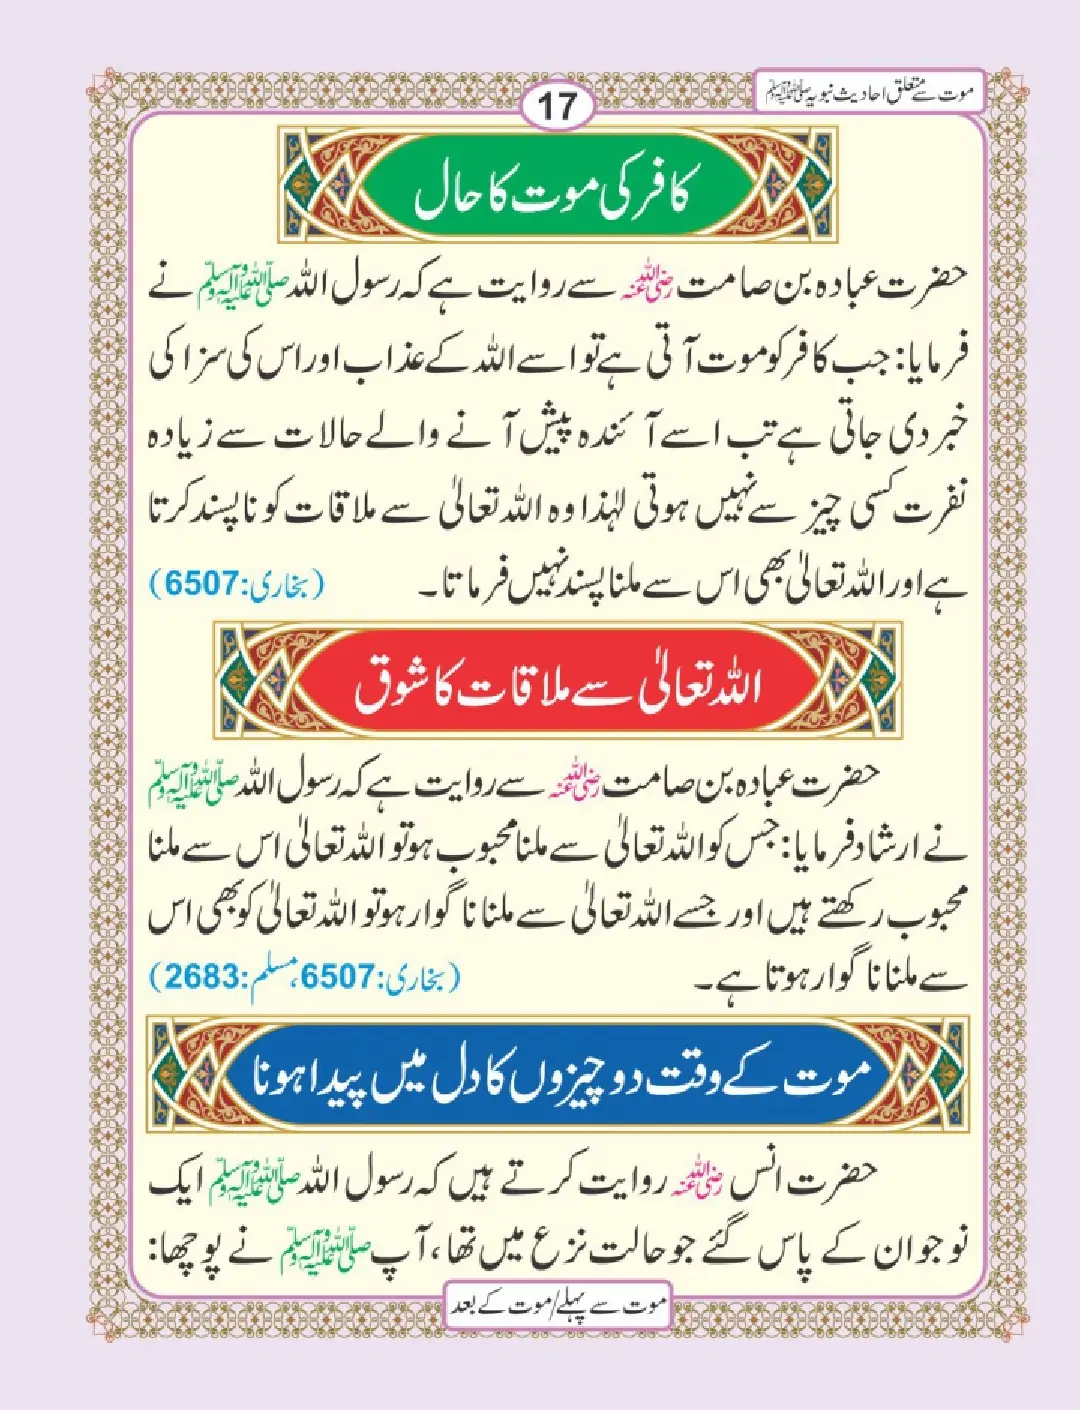 موت سے متعلق احادیث نبویہ ﷺ
17
کافر کی موت کا حال
حضرت عبادہ بن صامت رضی اللہ عنہ سے روایت ہے کہ رسول اللہ ﷺ نے
فرمایا: جب کافر کو موت آتی ہے تو اسے اللہ کے عذاب اور اس کی سزا کی
خبر دی جاتی ہے تب اسے آئندہ پیش آنے والے حالات سے زیادہ
نفرت کسی چیز سے نہیں ہوتی لہٰذا وہ اللہ تعالیٰ سے ملاقات کو ناپسند کرتا
ہے اور اللہ تعالیٰ بھی اس سے ملنا پسند نہیں فرماتا۔ (بخاری:6507)
اللہ تعالیٰ سے ملاقات کا شوق
حضرت عبادہ بن صامت رضی اللہ عنہ سے روایت ہے کہ رسول اللہ ﷺ
نے ارشاد فرمایا: جس کو اللہ تعالیٰ سے ملنا محبوب ہو تو اللہ تعالیٰ اس سے ملنا
محبوب رکھتے ہیں اور جسے اللہ تعالیٰ سے ملنا ناگوار ہو تو اللہ تعالیٰ کو بھی اس
سے ملنا ناگوار ہوتا ہے۔ (بخاری:6507، مسلم:2683)
موت کے وقت دو چیزوں کا دل میں پیدا ہونا
حضرت انس رضی اللہ عنہ روایت کرتے ہیں کہ رسول اللہ ﷺ ایک
نوجوان کے پاس گئے جو حالت نزع میں تھا، آپ ﷺ نے پوچھا:
موت سے پہلے/موت کے بعد